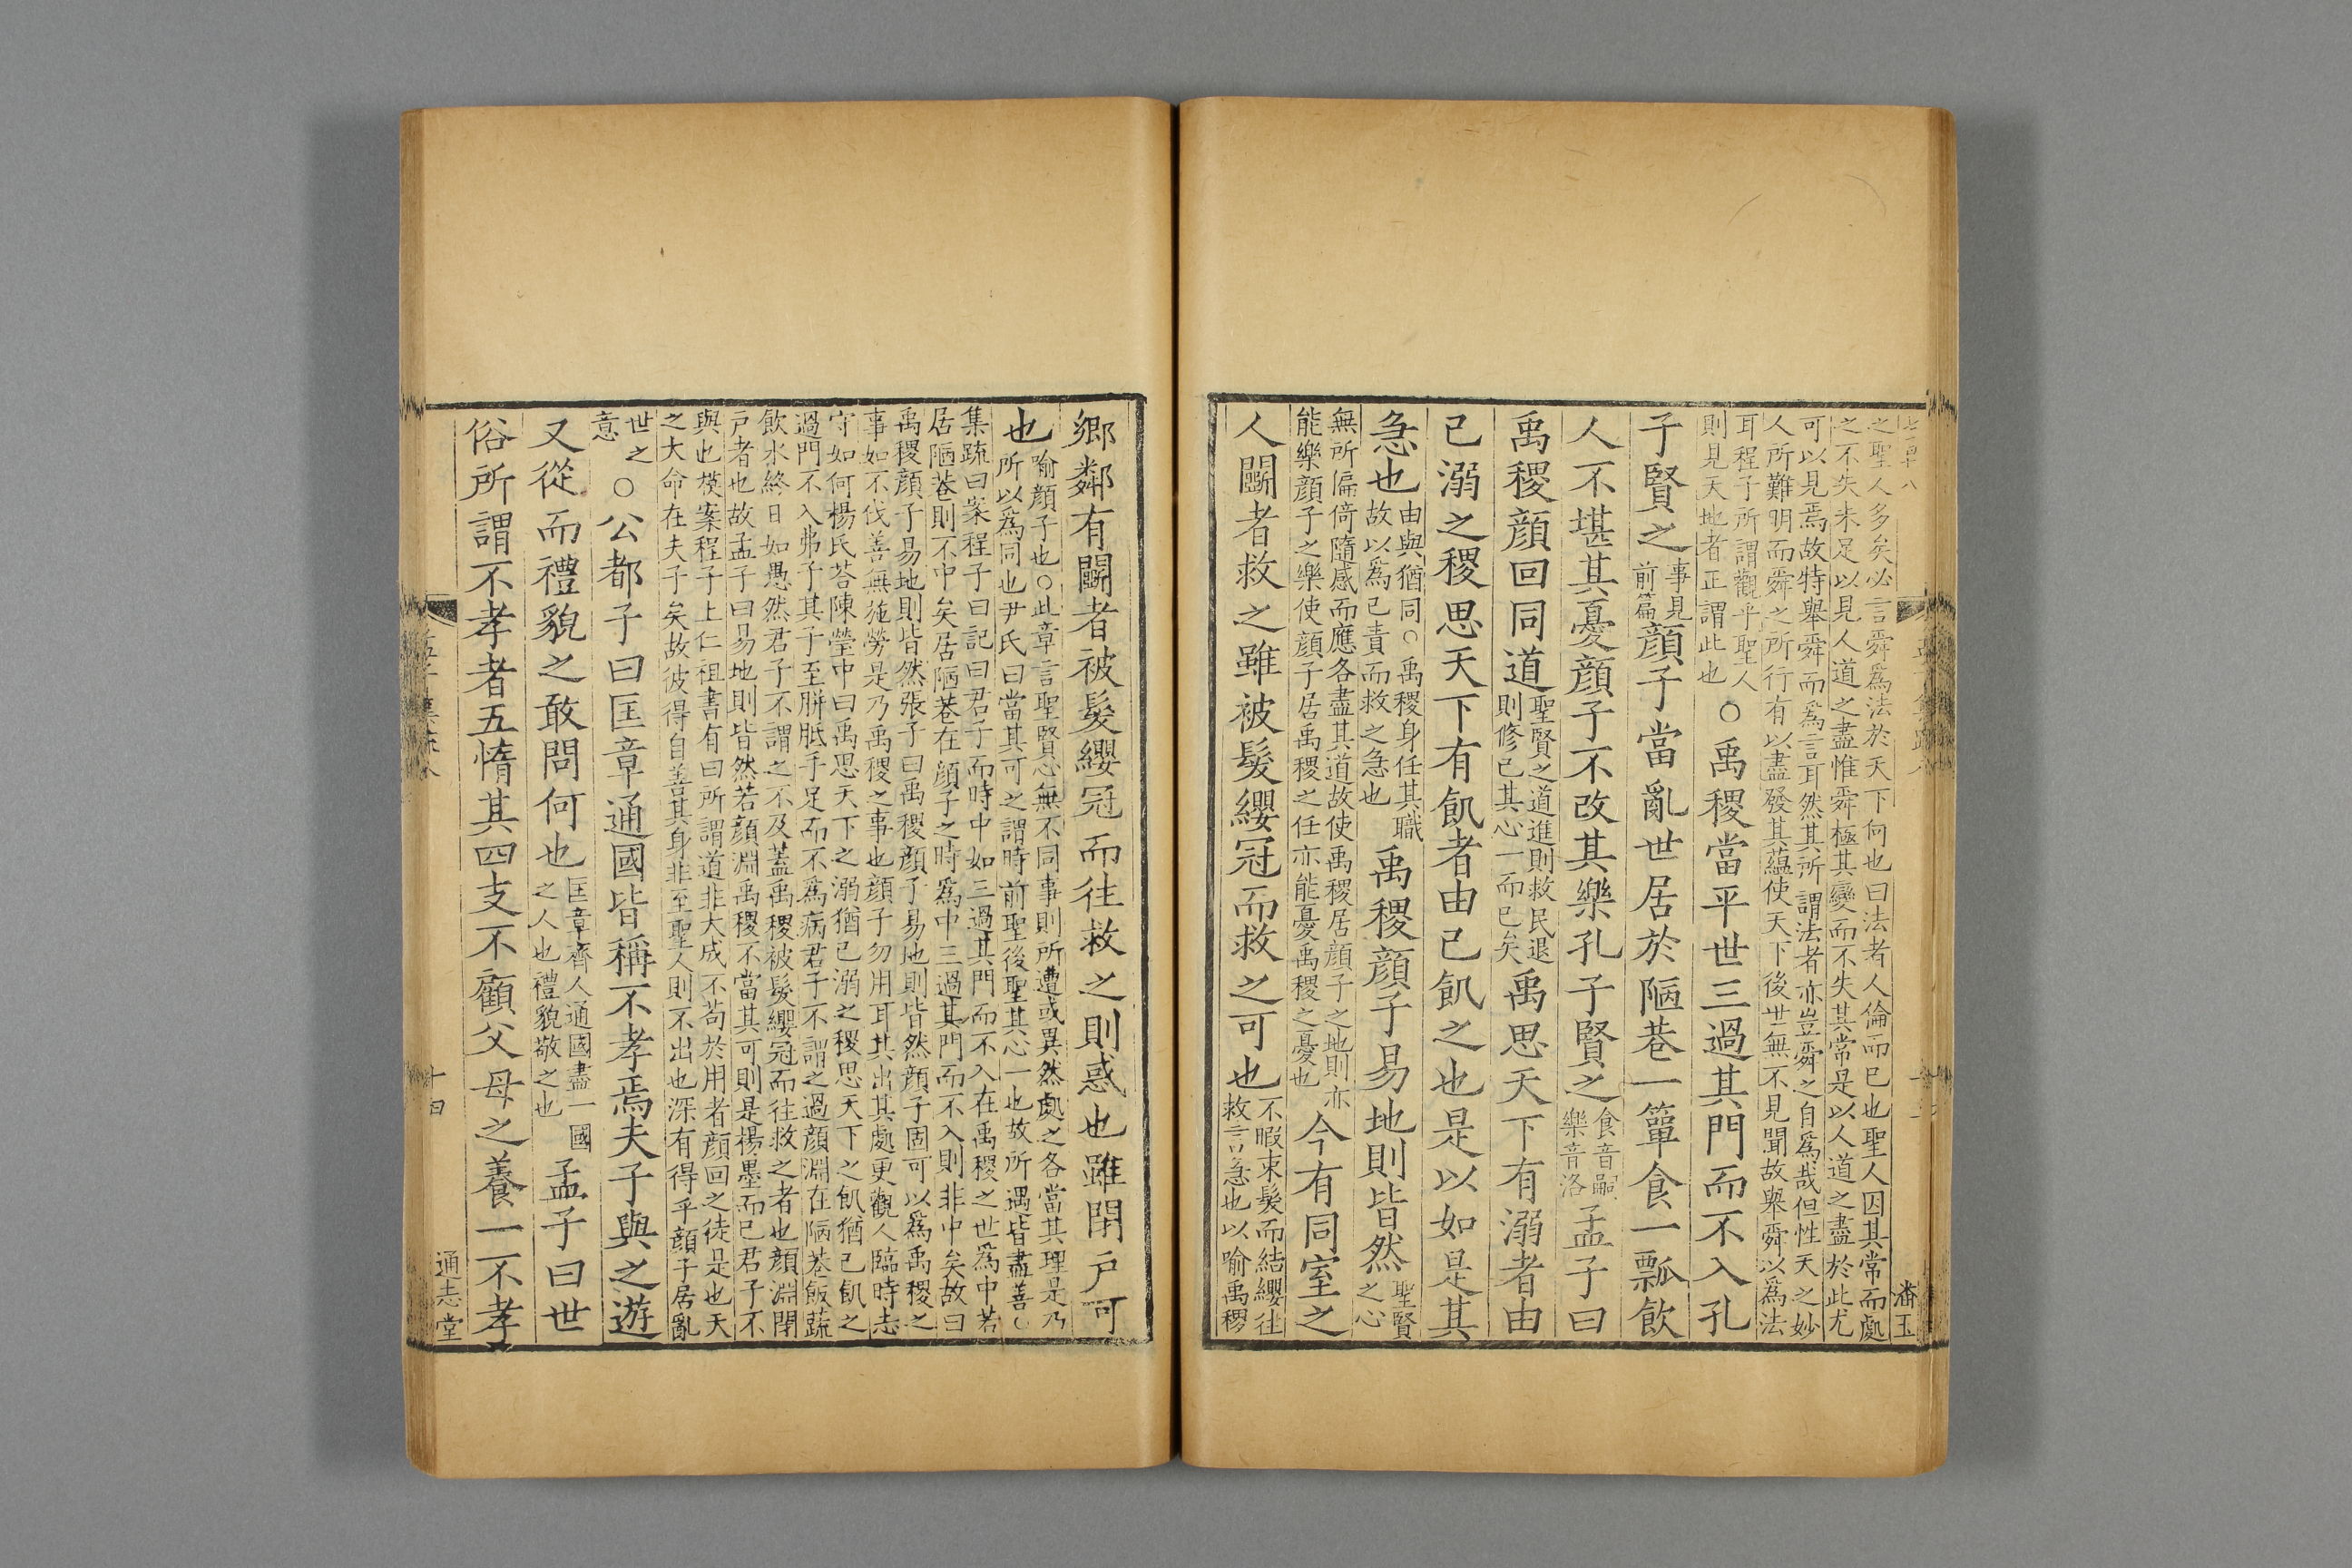 之聖人多矣必言舜爲法於天下何也曰法者人倫而已也聖人因其常而處
之不失未足以見人道之盡惟舜極其變而不失其常是以人道之盡於此尤
可以見焉故特舉舜而爲言耳然其所謂法者亦豈舜之自爲哉但性天之妙
人所難明而舜之所行有以盡發其蘊使天下後世無不見聞故舉舜以爲法
耳程子所謂觀乎聖人
則見天地者正謂此也
○禹稷當平世三過其門而不入孔
子賢之
事見
前篇
顔子當亂世居於陋巷一簞食一瓢飲
人不堪其憂顔子不改其樂孔子賢之
食音嗣
樂音洛
孟子曰
禹稷顔回同道
聖賢之道進則救民退
則修已其心一而已矣
禹思天下有溺者由
已溺之稷思天下有飢者由已飢之也是以如是其
急也
由與猶同○禹稷身任其職
故以爲已責而救之急也
禹稷顔子易地則皆然
聖賢
之心
無所偏倚隨感而應各盡其道故使禹稷居顔子之地則亦
能樂顔子之樂使顔子居禹稷之任亦能憂禹稷之憂也
今有同室之
人鬭者救之雖被髮纓冠而救之可也
不暇束髮而結纓往
救言急也以喻禹稷
潘玉
鄉鄰有鬭者被髮纓冠而往救之則惑也雖閉戸可
也
喻顔子也○此章言聖賢心無不同事則所遭或異然處之各當其理是乃
所以爲同也尹氏曰當其可之謂時前聖後聖其心一也故所遇皆盡善○
集疏曰案程子曰記曰君子而時中如三過其門而不入在禹稷之世爲中若
居陋巷則不中矣居陋巷在顔子之時爲中三過其門而不入則非中矣故曰
禹稷顔子易地則皆然張子曰禹稷顔子易地則皆然顔子固可以爲禹稷之
事如不伐善無施勞是乃禹稷之事也顔子勿用耳其出其處更觀人臨時志
守如何楊氏荅陳瑩中曰禹思天下之溺猶已溺之稷思天下之飢猶已飢之
過門不入弗子其子至胼胝手足而不爲病君子不謂之過顔淵在陋巷飯蔬
飲水終日如愚然君子不謂之不及蓋禹稷被髮纓冠而往救之者也顔淵閉
戸者也故孟子曰易地則皆然若顔淵禹稷不當其可則是楊墨而已君子不
與也模案程子上仁祖書有曰所謂道非大成不苟於用者顔回之徒是也天
之大命在夫子矣故彼得自善其身非至聖人則不出也深有得乎顔子居亂
世之
意
○公都子曰匡章通國皆稱不孝焉夫子與之遊
又從而禮貌之敢問何也
匡章齊人通國盡一國
之人也禮貌敬之也
孟子曰世
俗所謂不孝者五惰其四支不顧父母之養一不孝
十四
通志堂